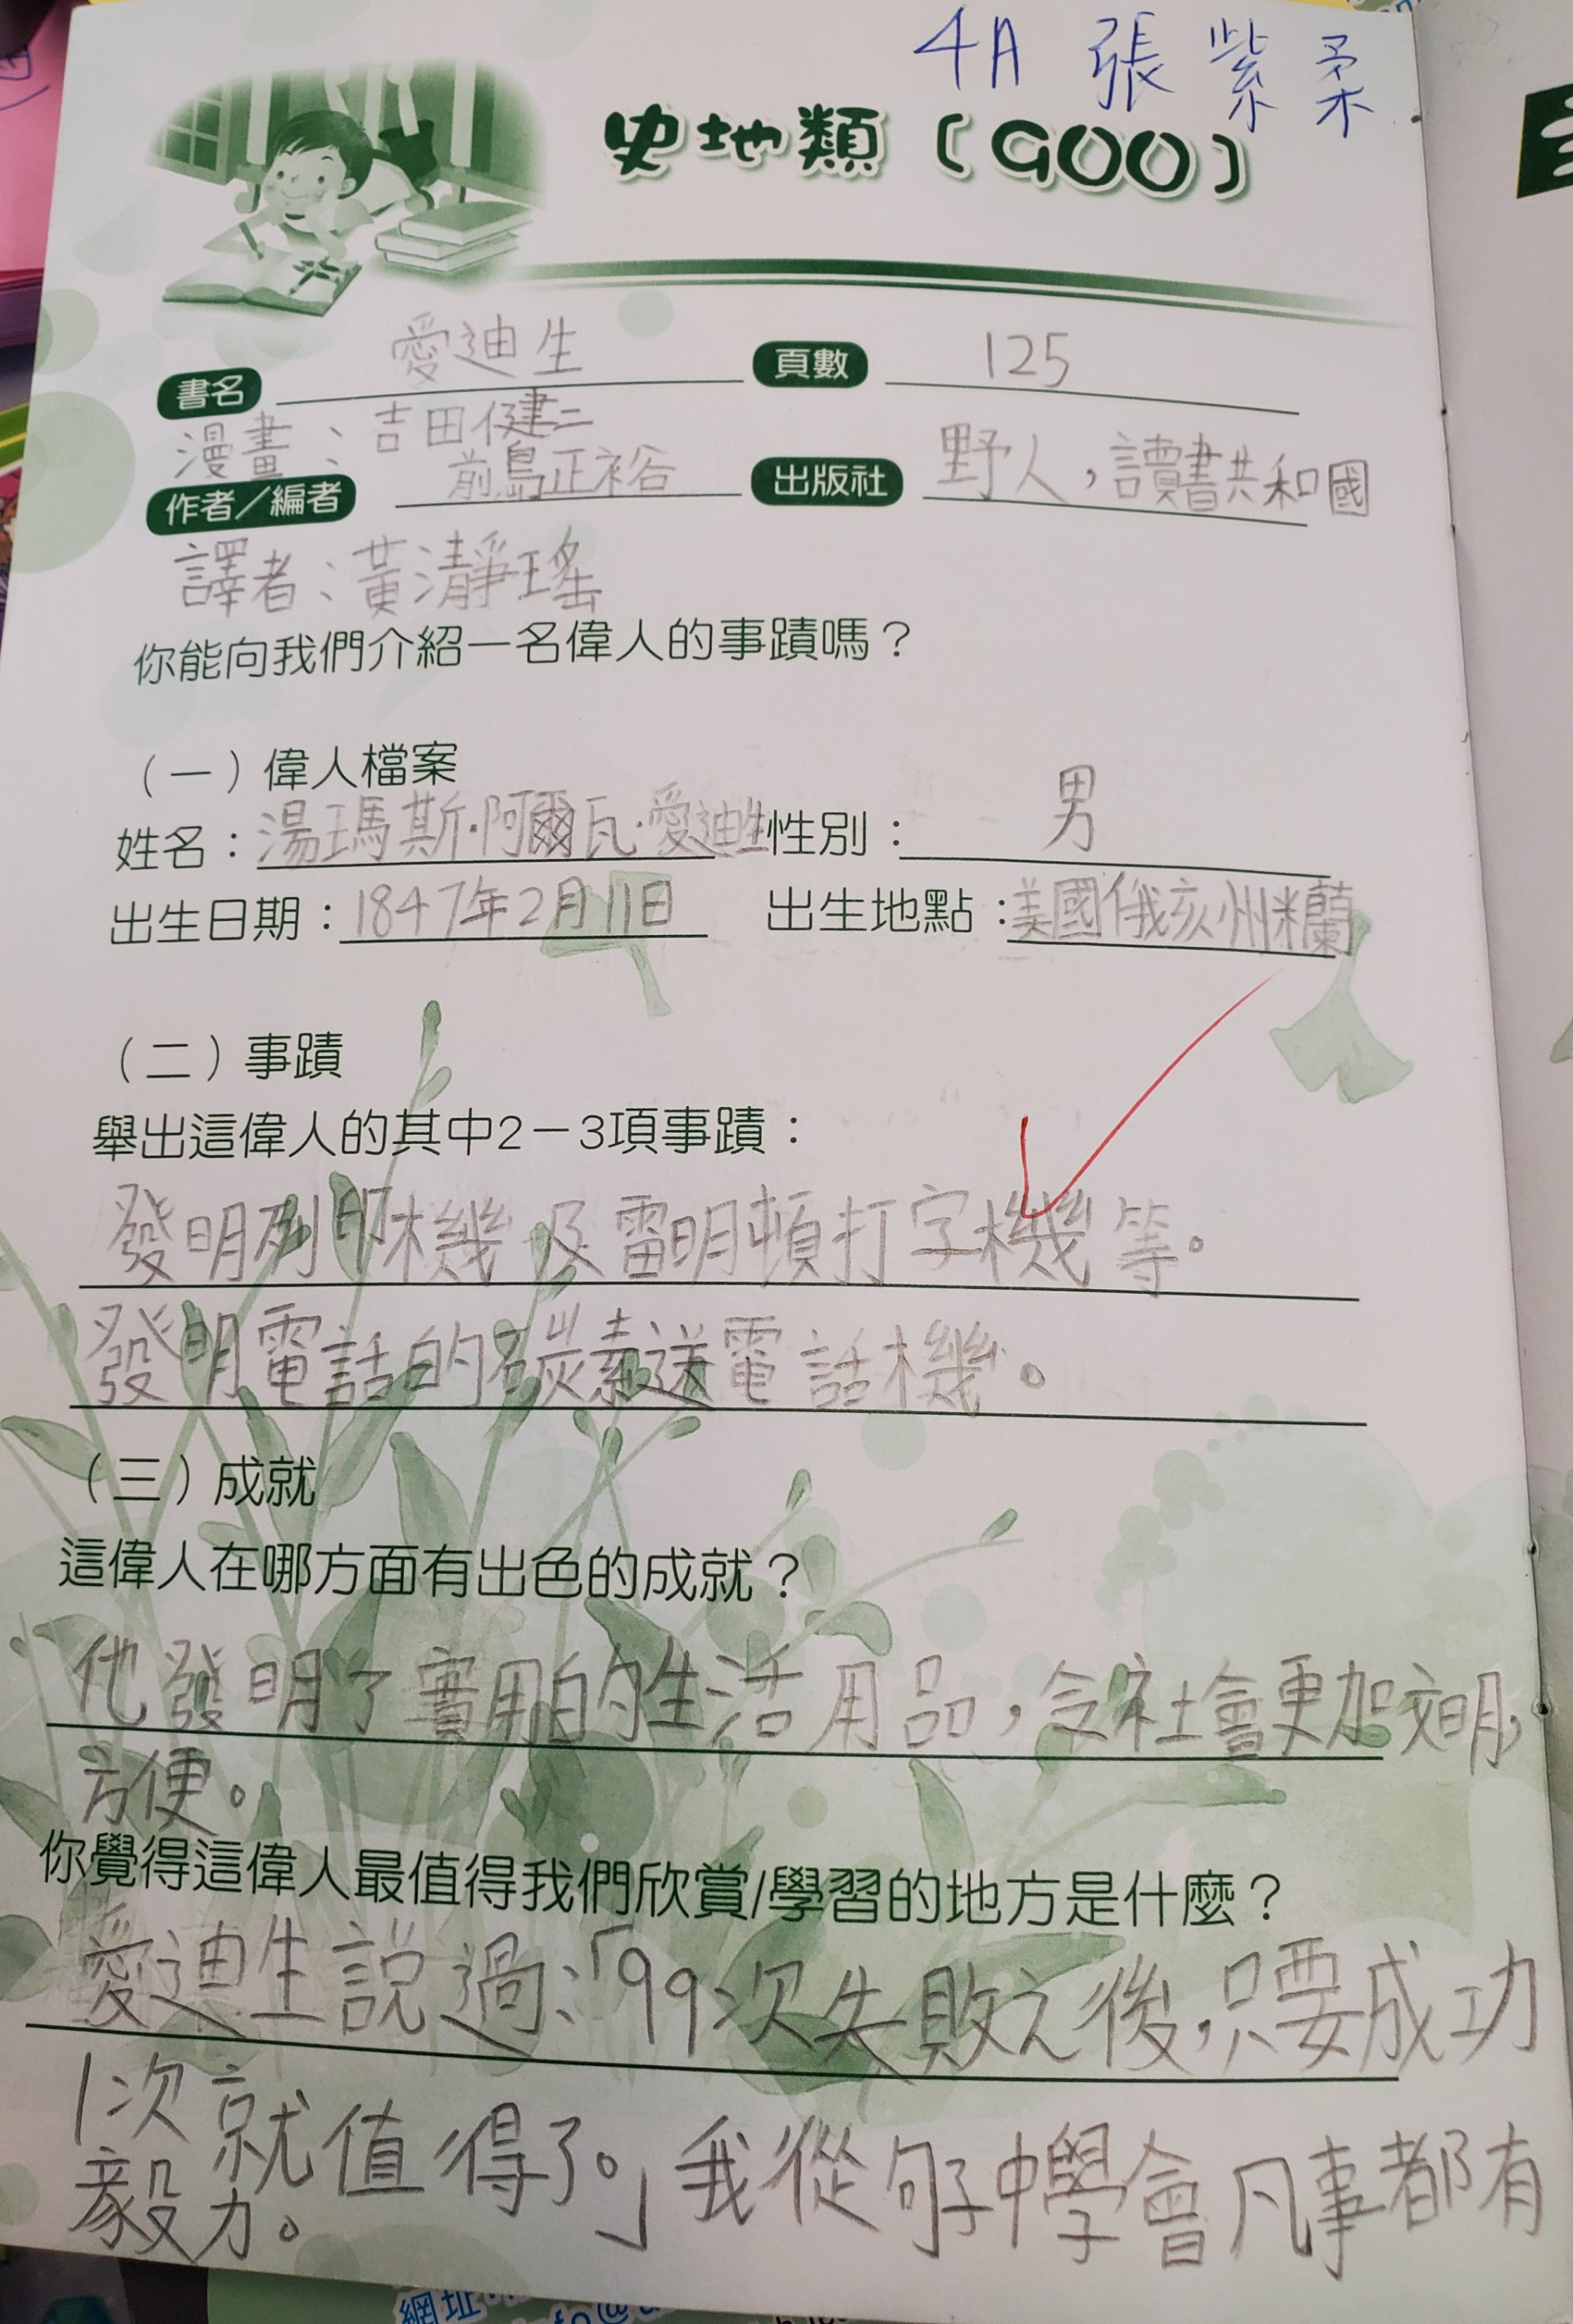 4A 張紫柔
史地類〔900〕
書名 愛迪生 頁數 125
漫畫：吉田健二
作者／編者 前島正裕 出版社 野人，讀書共和國
譯者：黃瀞瑤
你能向我們介紹一名偉人的事蹟嗎？
（一）偉人檔案
姓名：湯瑪斯·阿爾瓦·愛迪生 性別：男
出生日期：1847年2月11日 出生地點：美國俄亥州米蘭
（二）事蹟
舉出這偉人的其中2－3項事蹟：
發明列印機及雷明頓打字機等。
發明電話的碳素送電話機。
（三）成就
這偉人在哪方面有出色的成就？
他發明了實用的生活用品，令社會更加文明，
方便。
你覺得這偉人最值得我們欣賞/學習的地方是什麼？
愛迪生說過：「99次失敗之後，只要成功
1次就值得了。」我從句子中學會凡事都有
毅力。
網址